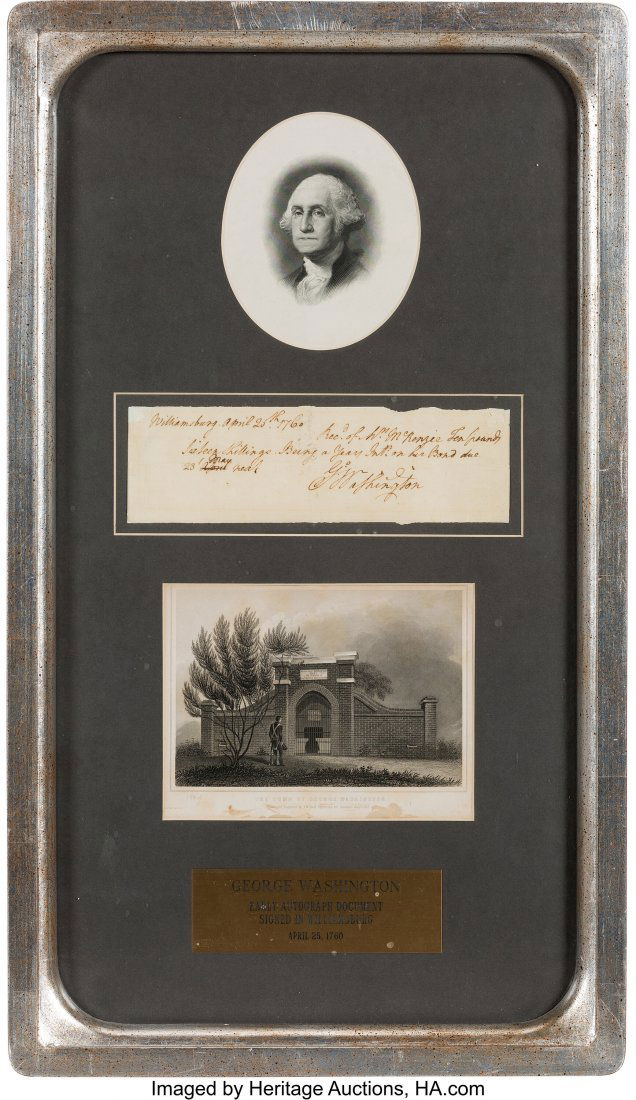 Williamsburg April 25th. 1760
Recd. of Mr. McKenzie Ten pounds
Sixteen Shillings Being a Years Intt. on his Bond due
28 May next
Go Washington
THE TOMB OF GEORGE WASHINGTON
GEORGE WASHINGTON
EARLY AUTOGRAPH DOCUMENT
SIGNED IN WILLIAMSBURG
APRIL 25, 1760
Imaged by Heritage Auctions, HA.com